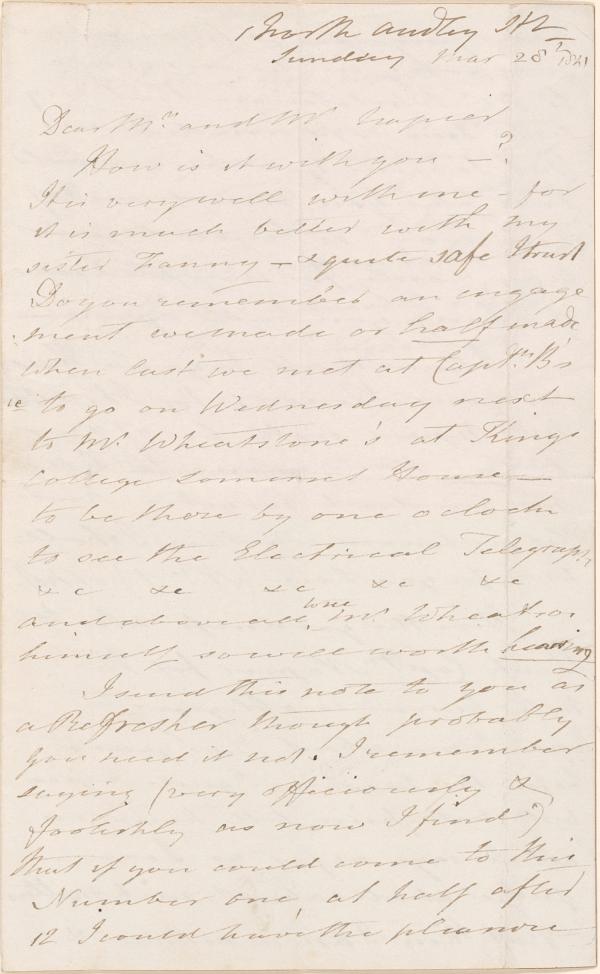 1 North Audley St
Sunday Mar 28th 1841
Dear Mrs and Mr Napier
How is it with you —?
It is very well with me - for
it is much better with my
sister Fanny — & quite safe I trust
Do you remember an engage
ment we made or half made
when last we met at Captn B's
to go on Wednesday next
to Mr Wheatstone's at Kings
College Somerset House —
to be there by one o clock
to see the Electrical Telegraph
&c &c &c &c &c
and above all, Mr. Wheatstone
himself so well worth hearing
I send this note to you as
a Refresher though probably
you need it not. I remember
saying (very officiously &
foolishly as now I find)
that if you could come to this
Number one at half after
12 I could have the pleasure